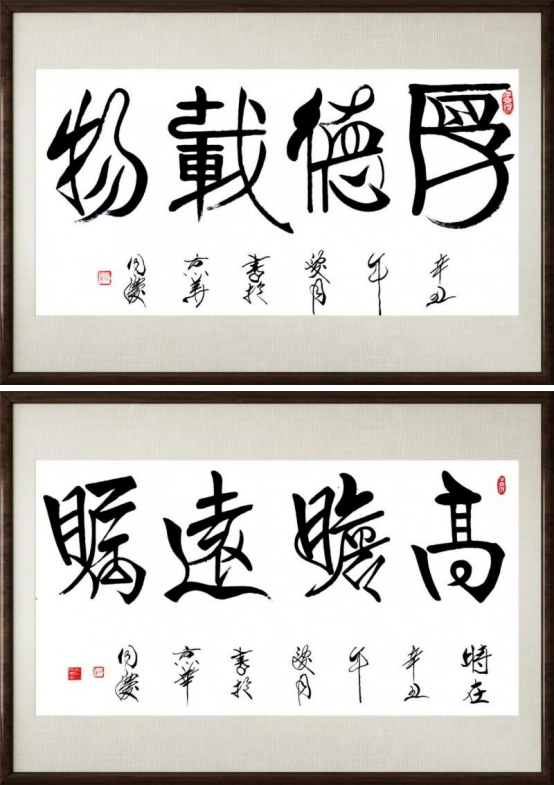 厚德載物
辛丑年月書於京華
高瞻遠矚
時在辛丑年月書於京華